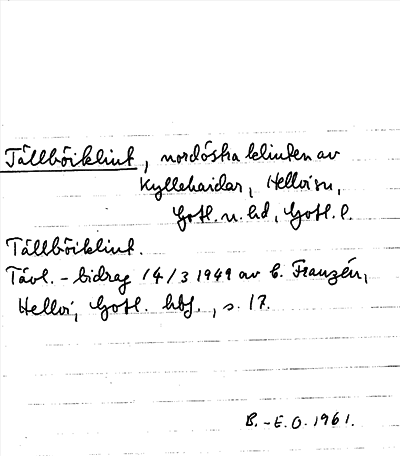 Tällböiklint, nordöstra klinten av
Kyllehaidar, Hellvi sn,
Gotl. n. hd, Gotl. l.
Tällböiklint.
Tävl.-bidrag 14/3 1949 av C. Franzén,
Hellvi, Gotl. hbf., s. 17.
B.-E.O. 1961.